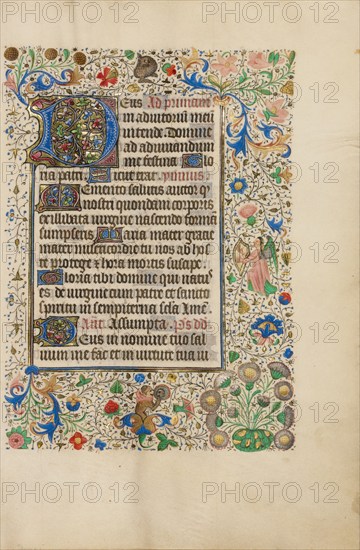 PHOTO 12 PHOTO 12 PHOTO 12
Deus Ad primam
in adiutoriū meū
intende Domine
ad adiuuandum
me festina Glo
ria patri Sicut erat ymnus
Memento salutis auctor q
nostri quondam corporis
ex illibata uirgine nascendo formā
sumpseris Maria mater gracie
mater misericordie tu nos ab hoste
protege & hora mortis suscipe
Gloria tibi domine qui natus
es de uirgine cum patre et sancto
spiritu in sempiterna secula Amē
Ant Assumpta Ps dd
Deus in nomine tuo sal
uum me fac et in uirtute tua iu
PHOTO 12 PHOTO 12 PHOTO 12